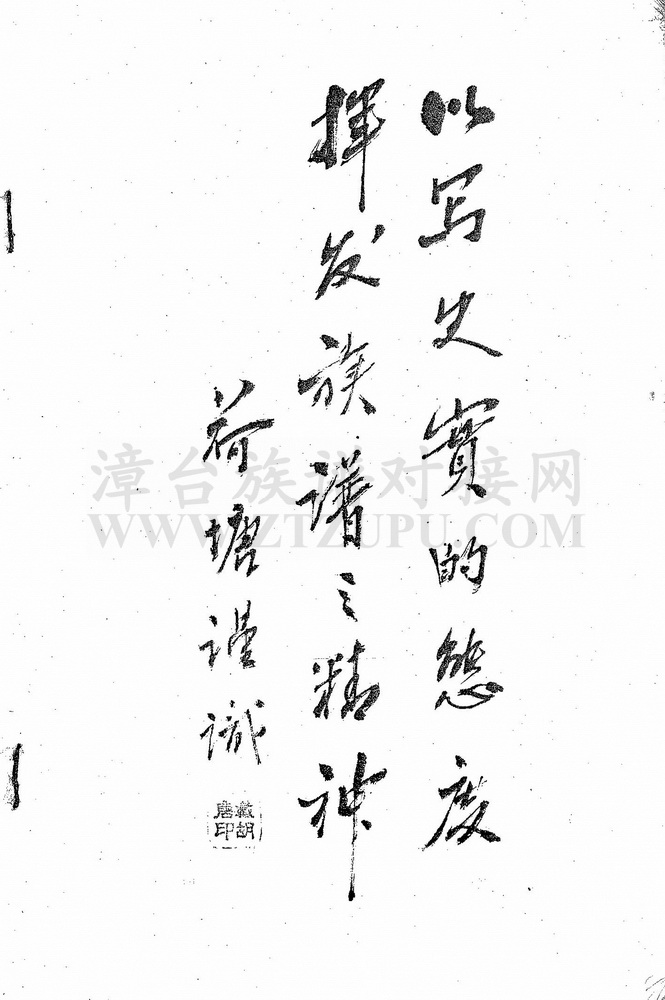 以写史實的態度
揮发族谱之精神
荷塘谨识
戴胡
唐印
漳台族谱对接网
WWW.ZTZUPU.COM